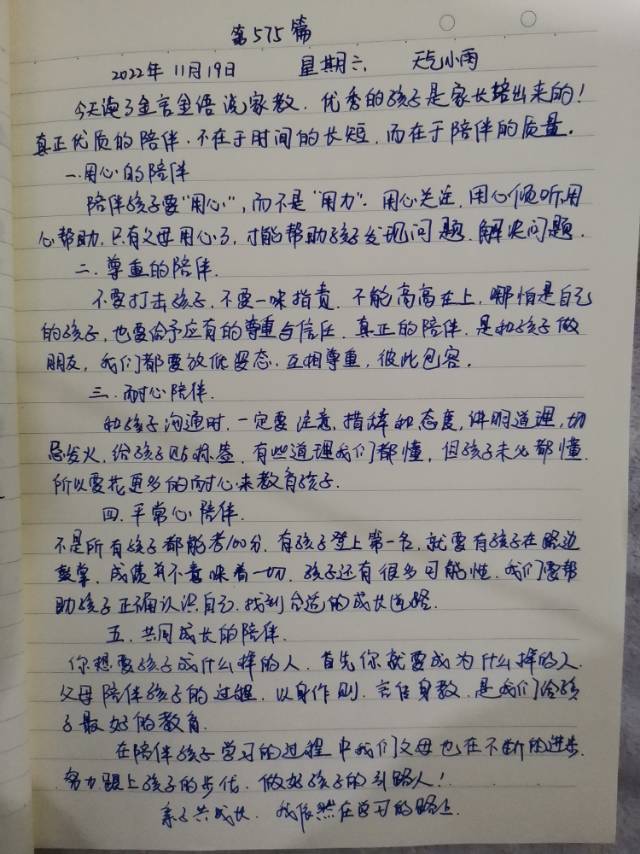 第575篇
2022年11月19日 星期六 天气小雨
今天读了金言金语说家教. 优秀的孩子是家长培出来的!
真正优质的陪伴.不在于时间的长短,而在于陪伴的质量.
一.用心的陪伴
陪伴孩子要"用心",而不是"用力".用心关注,用心倾听,用
心帮助.只有父母用心了,才能帮助孩子发现问题.解决问题.
二.尊重的陪伴.
不要打击孩子,不要一味指责.不能高高在上,哪怕是自己
的孩子,也要给予应有的尊重与信任.真正的陪伴.是和孩子做
朋友,我们都要放低姿态.互相尊重,彼此包容.
三.耐心陪伴.
和孩子沟通时.一定要注意,措辞和态度,讲明道理,切
忌发火,给孩子贴标签.有些道理我们都懂,但孩子未必都懂.
所以要花更多的耐心来教育孩子.
四.平常心陪伴.
不是所有孩子都能考100分.有孩子登上第一名,就要有孩子在路边
鼓掌.成绩并不意味着一切.孩子还有很多可能性.我们要帮
助孩子正确认识自己.找到合适的成长道路.
五.共同成长的陪伴.
你想要孩子成什么样的人.首先你就要成为什么样的人.
父母陪伴孩子的过程.以身作则.言传身教.是我们给孩
子最好的教育.
在陪伴孩子学习的过程中我们父母也在不断的进步.
努力跟上孩子的步伐.做好孩子的引路人!
亲子共成长.我依然在学习的路上.